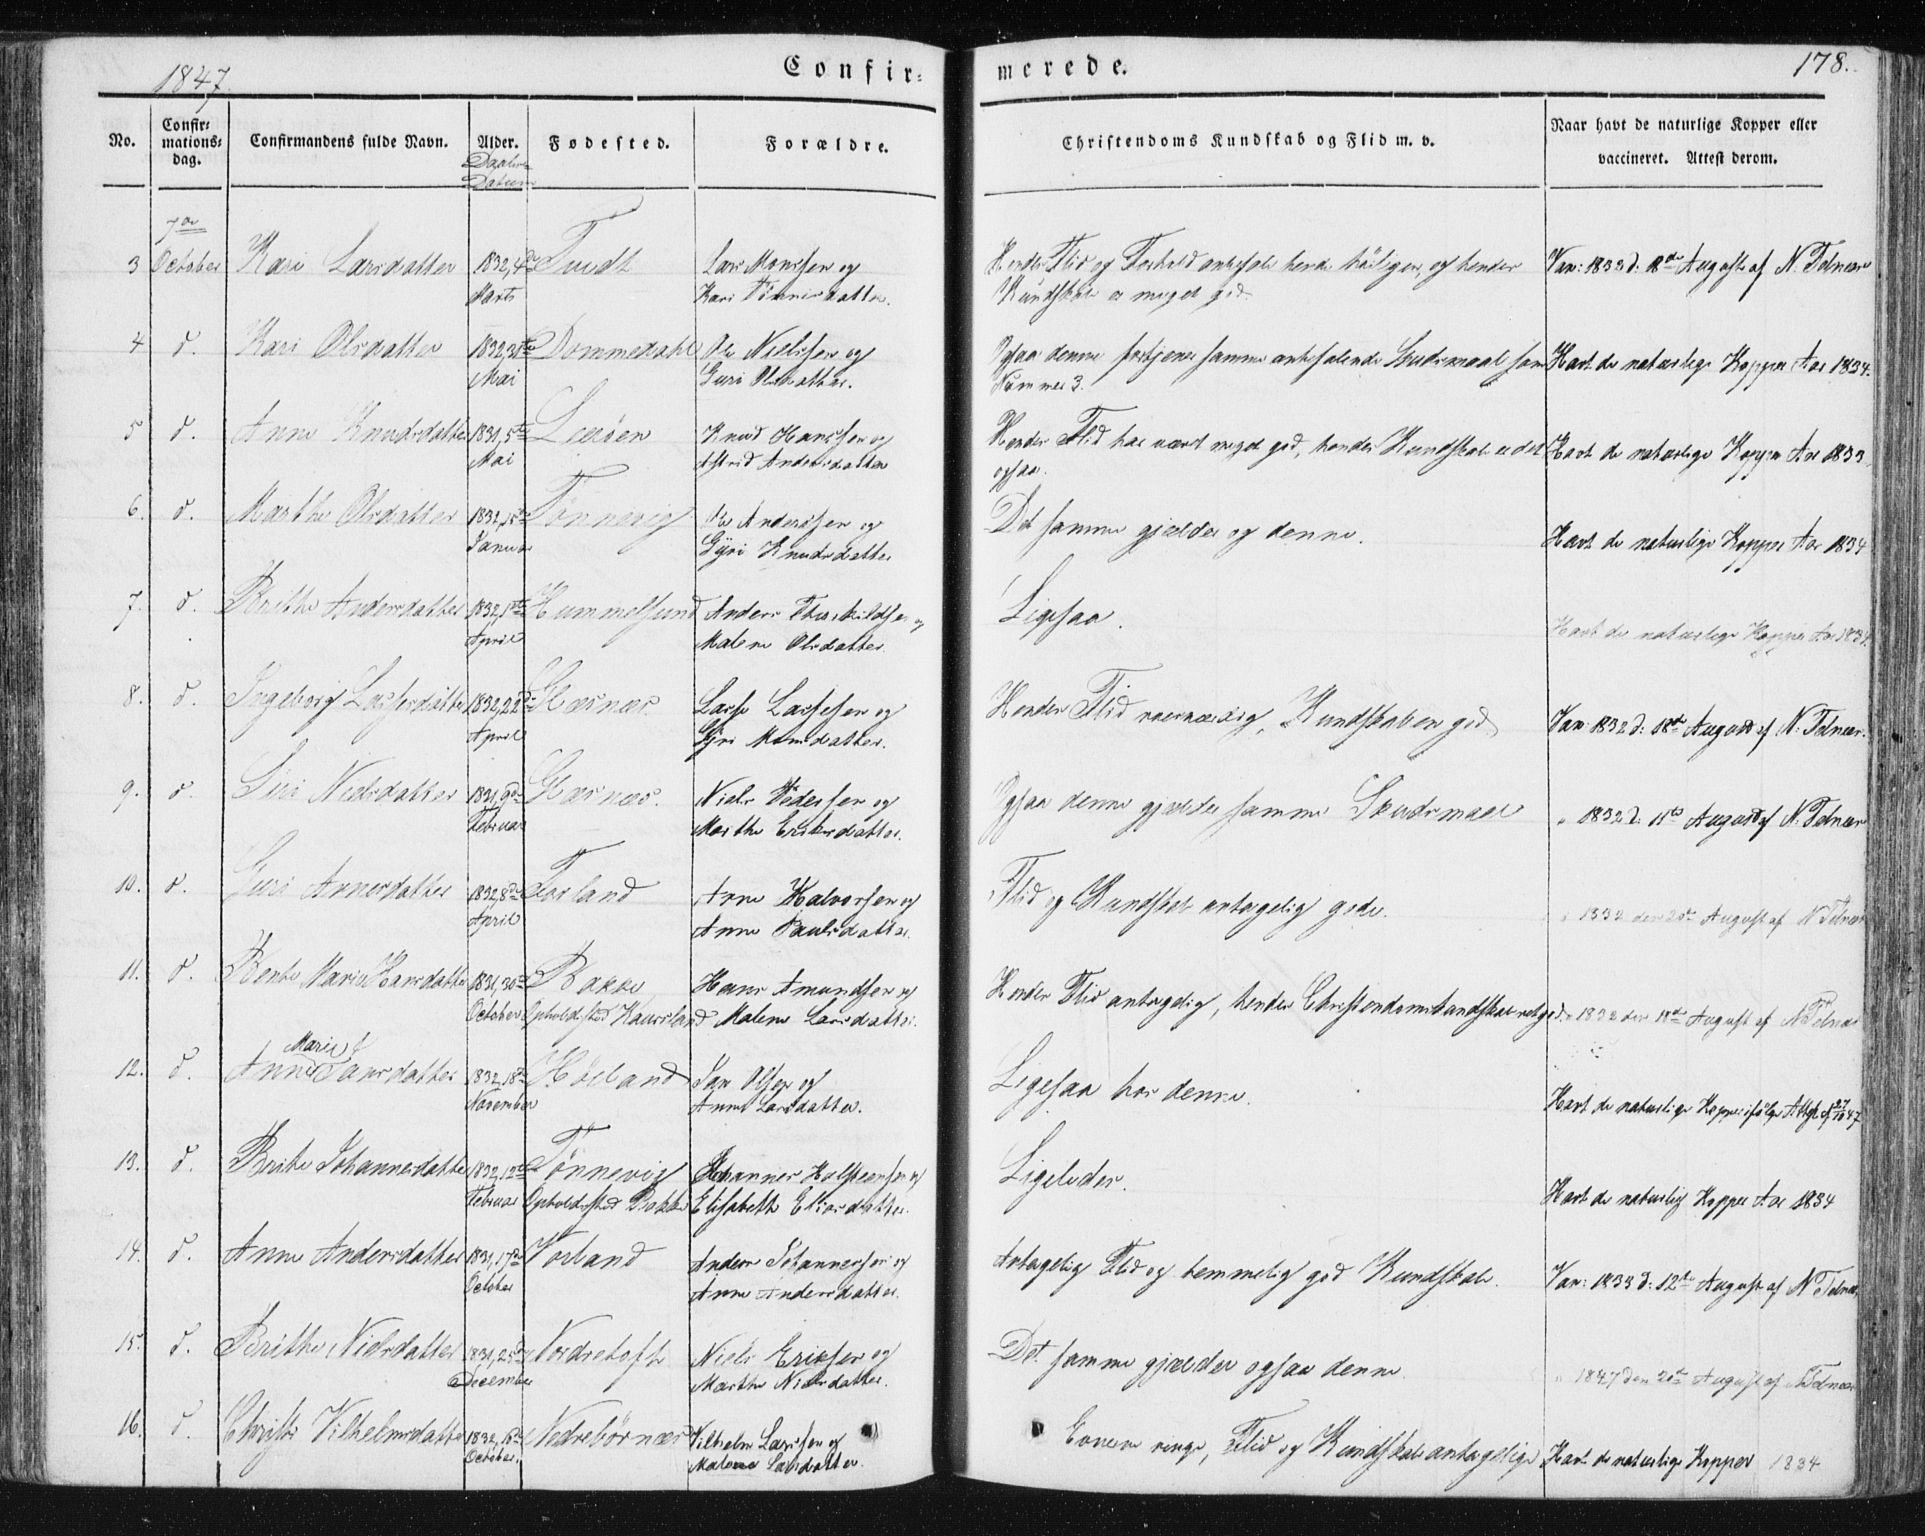 1847.
Confir=
merede.
178.
No.
Confir=
mations=
dag.
Confirmandens fulde Navn.
Alder.
Datum
Fødested.
Forældre.
Christendoms Kundskab og Flid m. v.
Naar havt de naturlige Kopper eller
vaccineret. Attest derom.
7de
3 October Kari Larsdatter 1832, 4de Lars Monssen og Hendes Flid og Forhold anbefale hende og hendes Vac: 1833 d: August af N. Telnæs
Marts Kari Kundskab er meget god.
4 d. Kari Olsdatter 1832 Dommedahl Ole Nielssen og Ogsaa denne fortjener samme anbefalende Skudsmaal som Havt de naturlige Kopper Aar 1834.
Mai Guri Olsdatter. Nummer 3.
5 d. Anne Knudsdatter 1831, 5te Lerøen Knud Hanssen og Hendes Flid har været meget god, hendes Kundskab er det Havt de naturlige Kopper Aar 1833
Mai Astrid Andersdatter ogsaa.
6. d. Marthe Olsdatter 1832, 15de Tønnevig Ole Anderssen og Det samme gjælder og denne. Havt de naturlige Kopper Aar 1834
Januar Gjøri Knudsdatter
7. d. Brithe Andersdatter 1832, 1ste Hummelsund Anders Thorkildsen og Ligesaa. Havt de naturlige Kopper Aar 1834.
April Malene Olsdatter.
8. d. Ingeborg Lassesdatter 1832, 22de Glesnæs. Lasse Lassesen og Hendes Flid Kundskaben god Vac: 1832 d: 18de August af N. Telnæs.
April Gjøri Monsdatter.
9. d. Siri Nielsdatter 1831, 9de Glesnæs. Niels Pedersen og Ogsaa denne gjælder samme Skudsmaal " 1832 d: 18de August af N. Telnæs
Februar Marthe Eriksdatter.
10. d. Guri Arnesdatter 1832, 8de Forland Arne Halvorsen og Flid og Kundskab antagelig gode. " 1832 den 20de August af N Telnæs
April Anne Paulsdatter.
11. d. Bente Marie Hansdatter 1831, 30te Bakke Hans Amundsen og Hendes Flid antagelig, hendes Christendomskundskab ret god. " 1832 den 18de August af N Telnæs
October Opholdsted Kausland Malene Larsdatter.
Marie
12. d. Anne Jansdatter 1832, 18de Høiland Jan Olsen og Ligesaa hos denne. Havt de naturlige Kopper ifølge Attest af 27/9 47
November Anne Larsdatter.
13. d. Brite Johannesdatter 1832, 12te Tønnevig Johannes og Ligeledes. Havt de naturlig Kopper Aar 1834
Februar Opholdsted Bakke Elisabeth
14. d. Anne Andersdatter 1831, 17de Forland Anders Johannessen og Antagelig Flid og temmelig god Kundskab. Vac: 1833 d: 12te August af N Telnæs
October Anne Andersdatter.
15. d. Brithe Nielsdatter 1831, 25de Nordretoft Niels Eriksen og Det samme gjælder ogsaa denne " 1847 den 20de August af N Telnæs
December Marthe Nielsdatter.
16. d. Christi Vilhelmsdatter 1832, Nedrebørnæs Vilhelm Larssen og Evnerne ringe, Flid og Kundskab antagelige Havt de naturlige Kopper 1834
October. Malene Larsdatter.